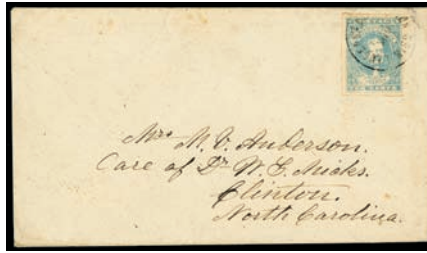 TEN CENTS
Mrs M. V. Anderson.
Care of Dr W. G. Micks.
Clinton.
North Carolina.